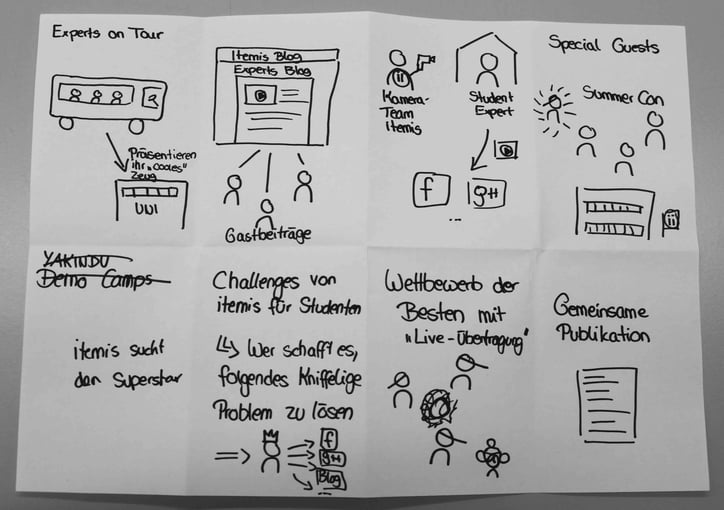 Experts on Tour
Präsentieren
ihr "cooles"
Zeug
UNI
Itemis Blog
Experts Blog
Gastbeiträge
Kamera-
Team
Itemis
Student
Expert
f
g+
...
Special Guests
Summer Con
YAKINDU
Demo Camps
itemis sucht
den Superstar
Challenges von
itemis für Studenten
Wer schafft es,
folgendes Kniffelige
Problem zu lösen
f
g+
Blog
...
Wettbewerb der
Besten mit
"Live-Übertragung"
Gemeinsame
Publikation